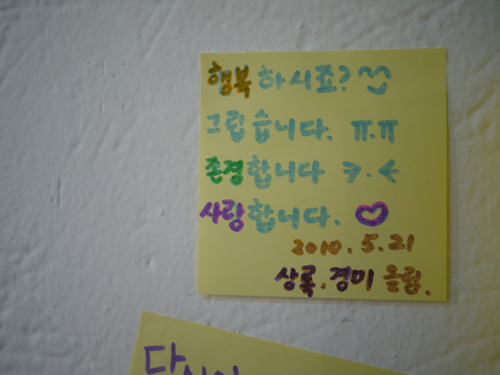 행복하시죠? ^^
그립습니다. ㅠ.ㅠ
존경합니다 >.<
사랑합니다. ♡
2010. 5. 21
상록. 경미 올림.